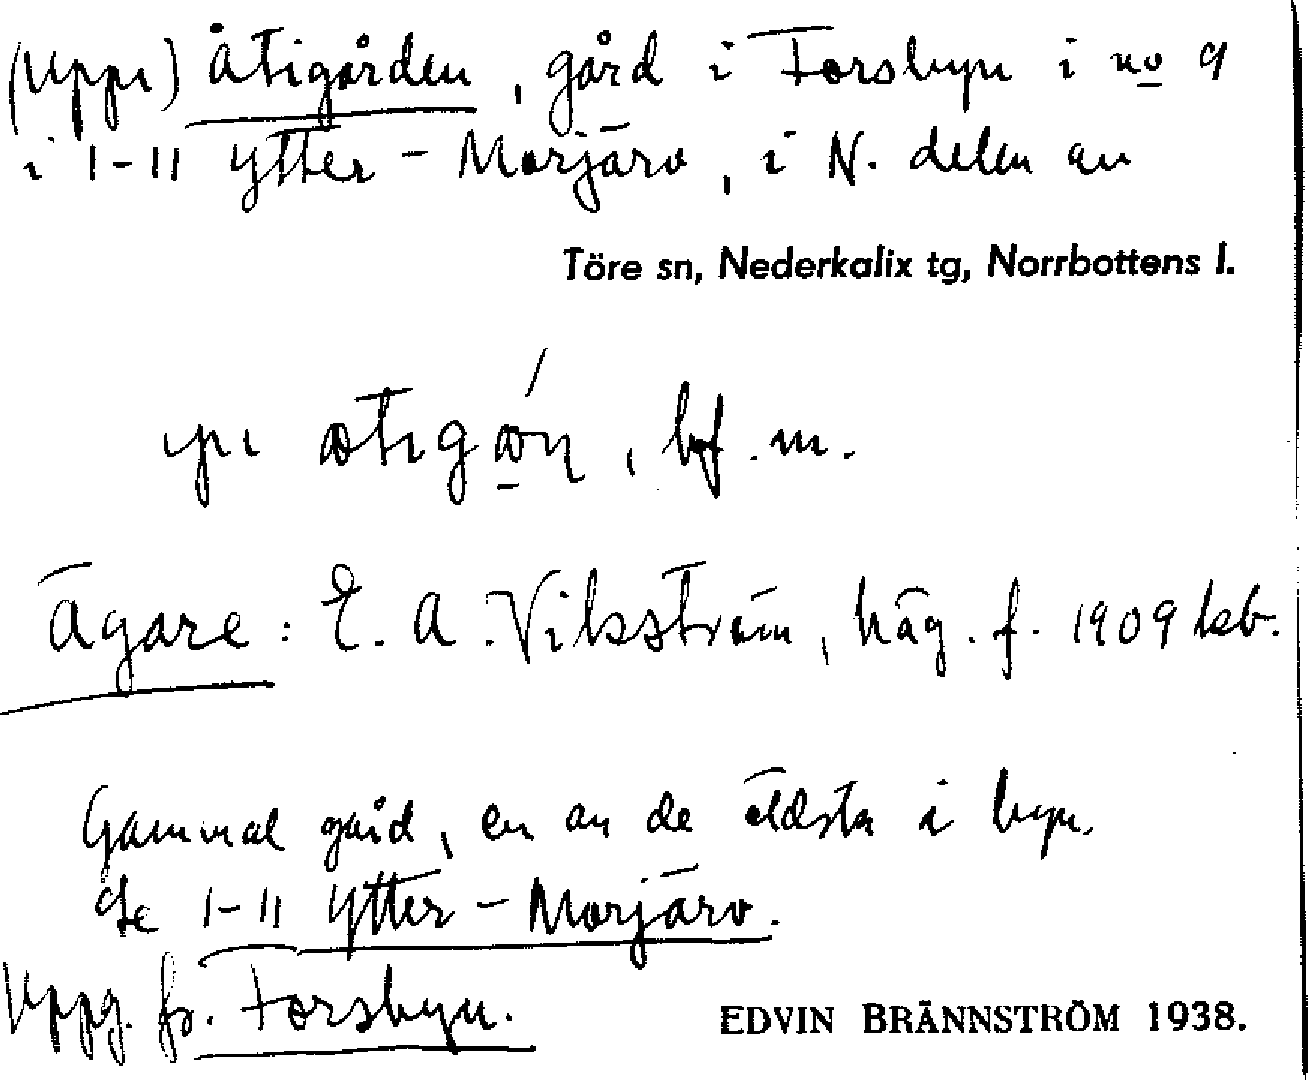 (Uppi) Åtigården, gård i Forsbyn i no 9
i 1-11 Ytter-Morjärv, i N. delen av
Töre sn, Nederkalix tg, Norrbottens l.
bf. m.
Ägare: E. A. Vikström, häg. f. 1909 kb.
Gammal gård, en av de äldsta i byn.
Se 1-11 Ytter-Morjärv.
Uppg. fr. Forsbyn.
EDVIN BRÄNNSTRÖM 1938.